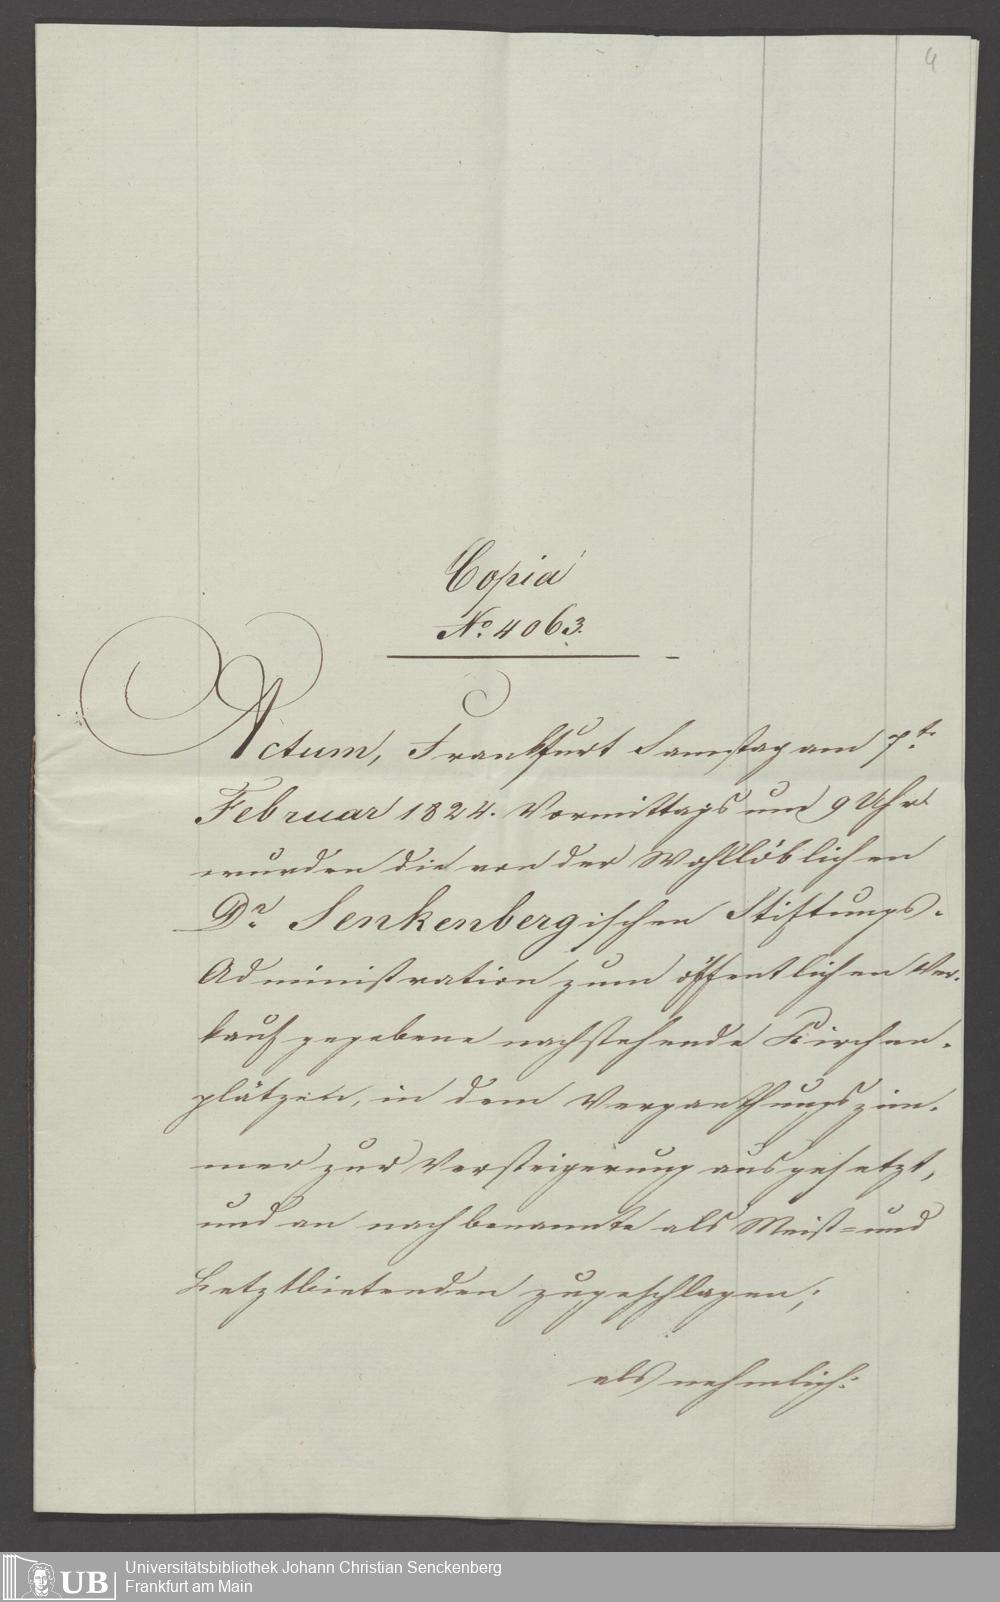 4
Copia
No. 4063.
Actum, Frankfurt Samstag am 7t.
Februar 1824. Vormittags um 9 Uhr
wurden die von der Wohllöblichen
Dr. Senkenbergischen Stiftungs-
Administration zum öffentlichen Ver-
kauf gegebene nachstehende Kirchen-
plätzen, in dem Verganthungszim-
mer zur Versteigerung ausgesetzt,
und an nachbenannte als Meist- und
Letztbietenden zugeschlagen;
als nehmlich:
UB
Universitätsbibliothek Johann Christian Senckenberg
Frankfurt am Main